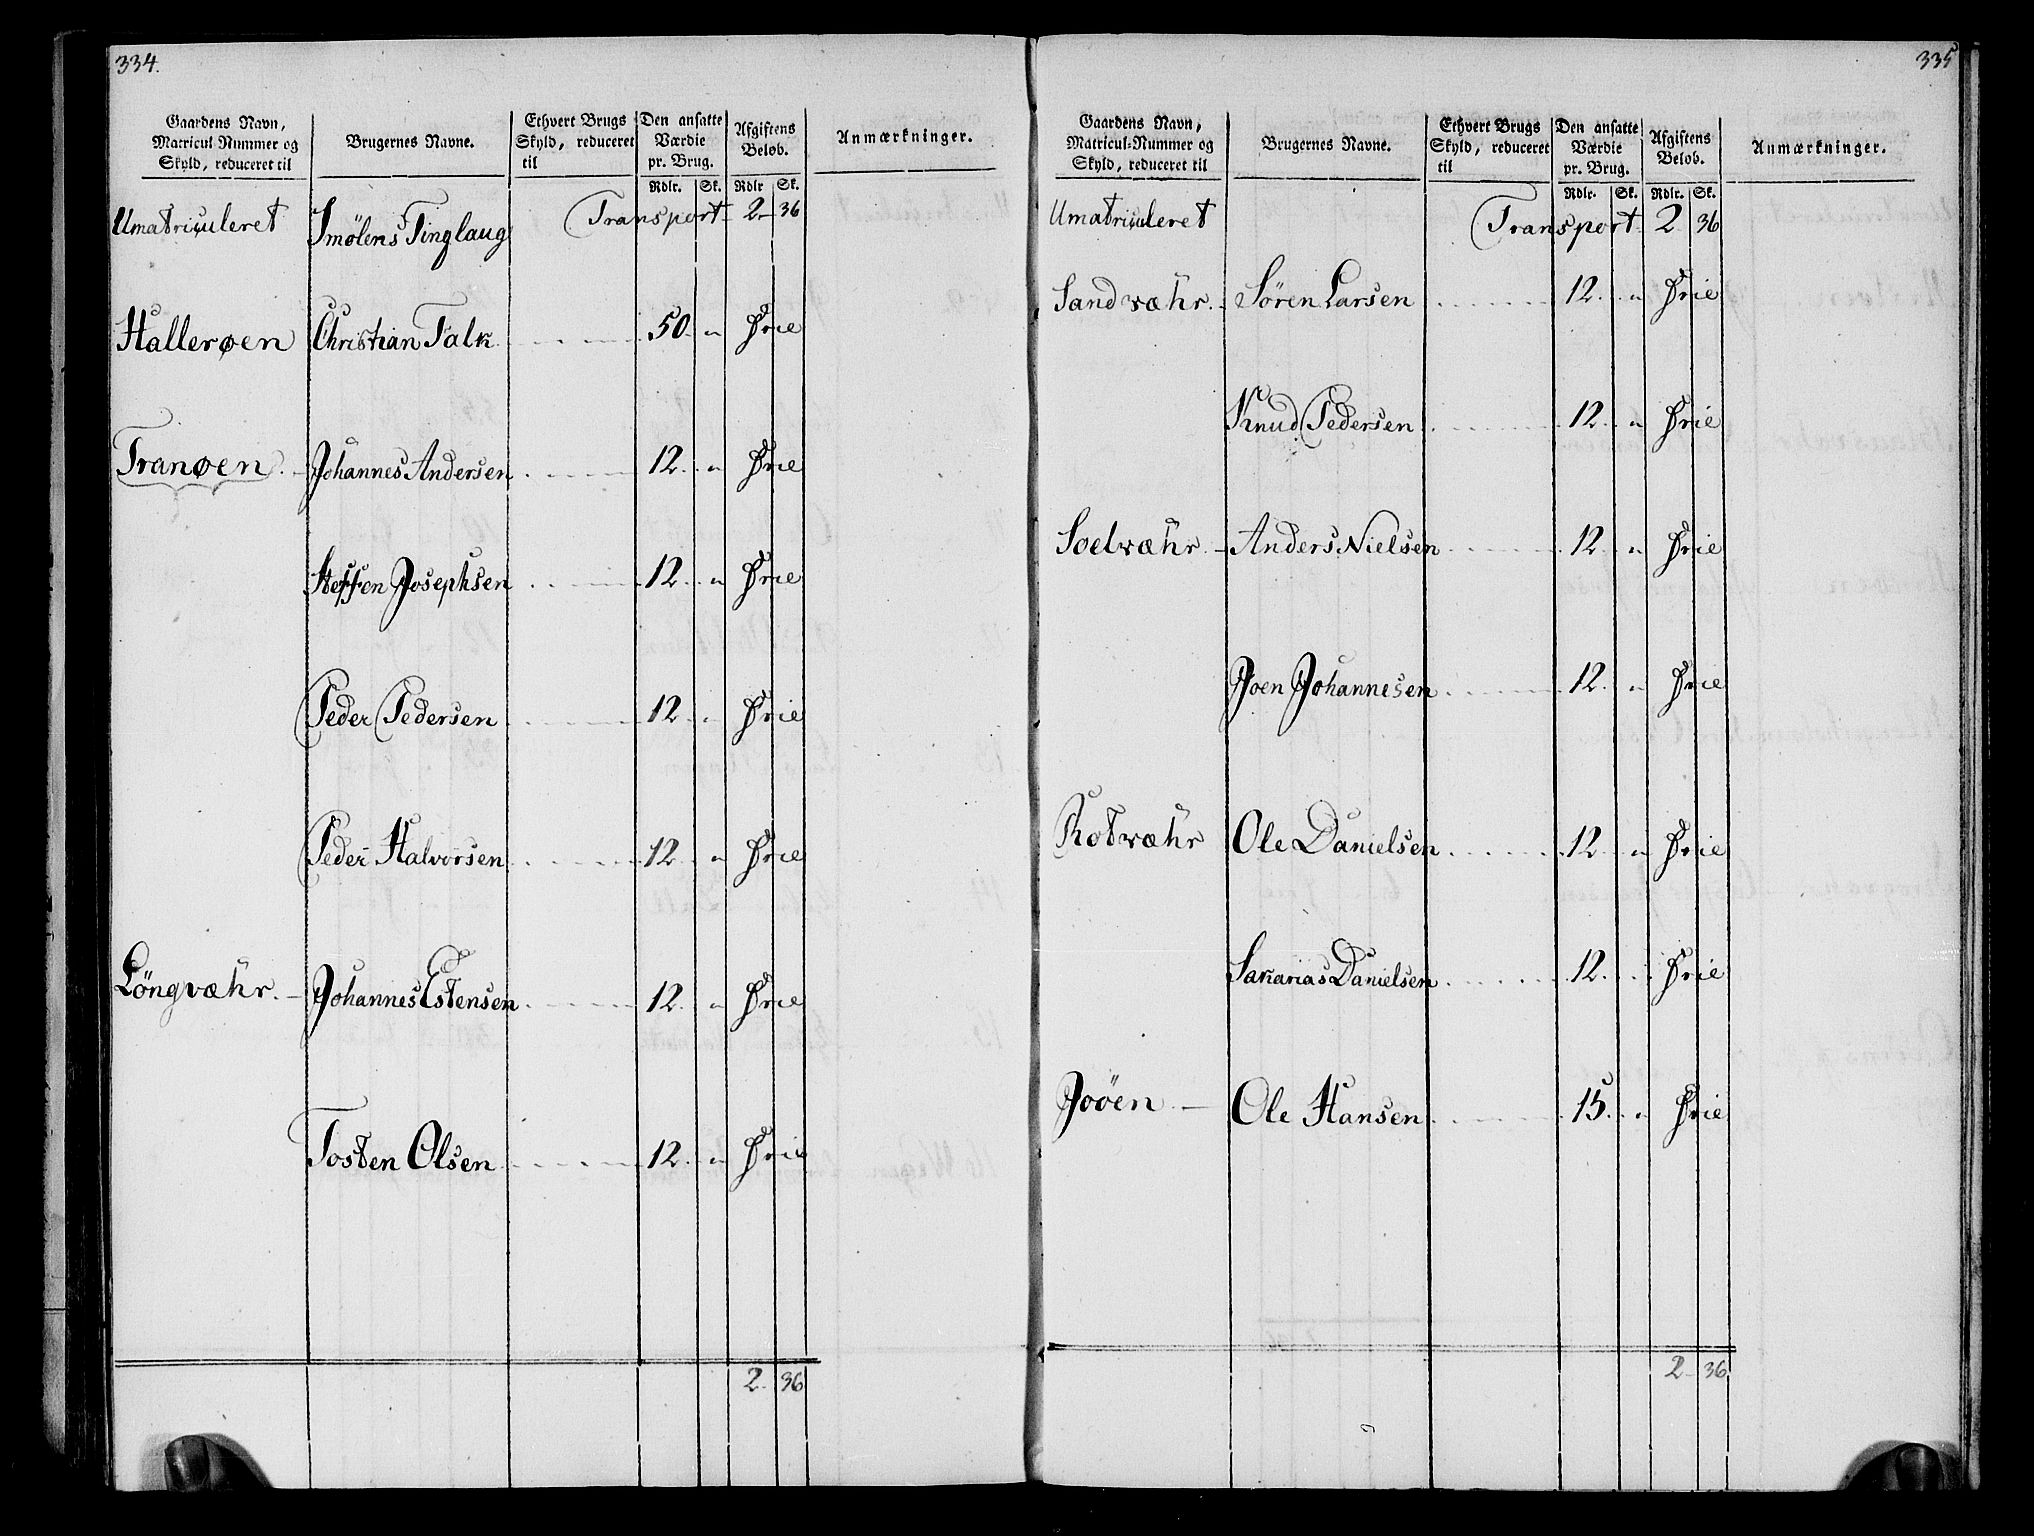 334.
Gaardens Navn, Matricul Nummer og Skyld, reduceret til | Brugernes Navne. | Ethvert Brugs Skyld, reduceret til | Den ansatte Værdie pr. Brug. Rdlr. Sk. | Afgiftens Beløb. Rdlr Sk. | Anmærkninger.
Umatriculeret Smølens Tinglaug Transport 2 36
Hallerøen Christian Falk 50 " Frie
Tranøen Johannes Andersen 12 " Frie
Steffen Josephsen 12 " Frie
Peder Pedersen 12 " Frie
Peder Halvorsen 12 " Frie
Löngvæhr. Johannes Estensen 12 " Frie
Tosten Olsen 12 " Frie
2 36
335
Gaardens Navn, Matricul-Nummer og Skyld, reduceret til | Brugernes Navne. | Ethvert Brugs Skyld, reduceret til | Den ansatte Værdie pr. Brug. Rdlr. Sk. | Afgiftens Beløb. Rdlr. Sk. | Anmærkninger.
Umatriculeret Transport 2 36
Sandvæhr. Sören Larsen 12 " Frie
Knud Pedersen 12 " Frie
Soelvæhr. Anders Nielsen 12 " Frie
Joen Johannesen 12 " Frie
Rotvæhr Ole Danielsen 12 " Frie
Sakarias Danielsen 12 " Frie
Joöen Ole Hansen 15 " Frie
2 36